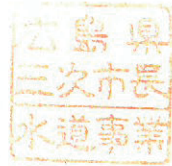 広島県
三次市長
水道事業